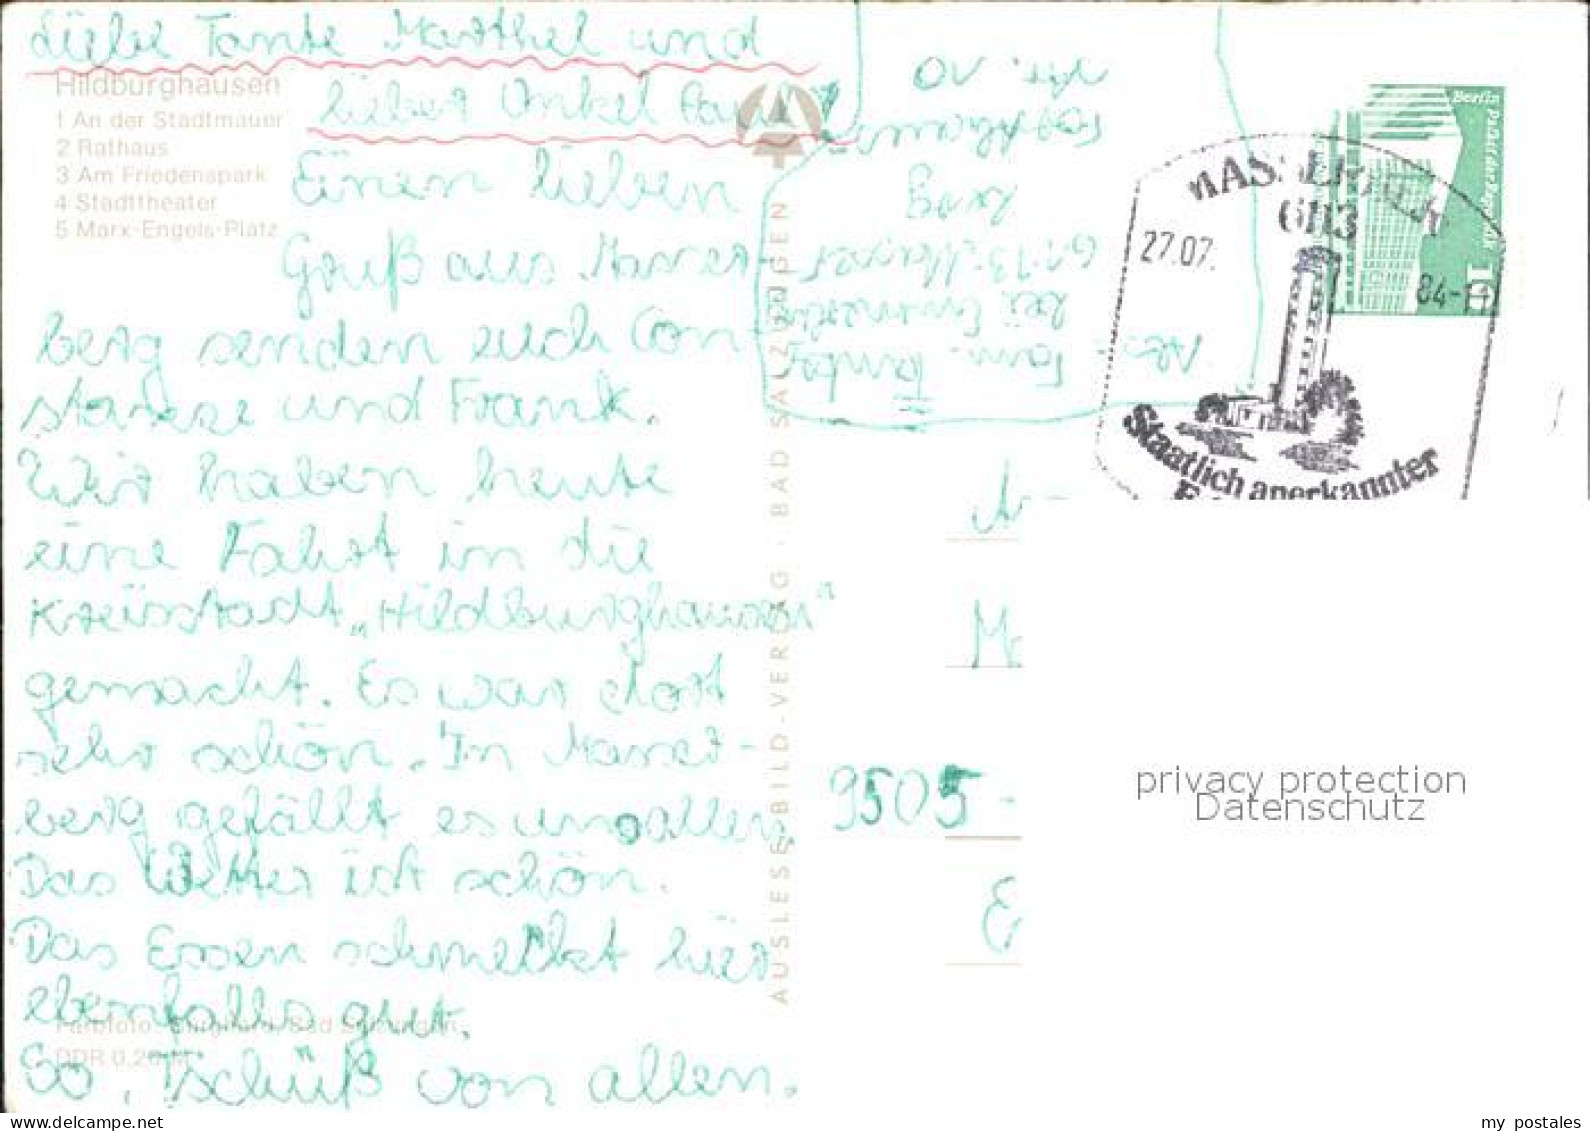 Liebe Tante Marthel und
lieber Onkel Paul
Hildburghausen
1 An der Stadtmauer
2 Rathaus
3 Am Friedenspark
4 Stadttheater
5 Marx-Engels-Platz
Einen lieben
Gruß aus Masser-
berg senden euch Con-
stanze und Frank.
Wir haben heute
eine Fahrt in die
Kreisstadt „Hildburghausen"
gemacht. Es war dort
sehr schön. In Masser-
berg gefällt es uns allen.
Das Wetter ist schön.
Das Essen schmeckt hier
ebenfalls gut.
So, Tschüß von allen.
Farbfoto: Bad Salzungen
DDR 0,20 M
AUSLESE-BILD-VERLAG · BAD SALZUNGEN
Abs.: Fam.
bei
6113 Masser-
berg
Nr. 10
MASSERBERG
6113
27.07.
84-
Staatlich anerkannter
Berlin Palast der Republik
10
9505 -
privacy protection
Datenschutz
my postales